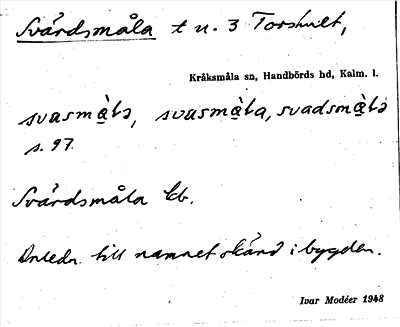 Svärdsmåla t u. 3 Torshult,
Kråksmåla sn, Handbörds hd, Kalm. l.
svasmàlɔ, svasmàla, svadsmàlɔ
s. 97.
Svärdsmåla Eb.
Anledn. till namnet okänd i bygden.
Ivar Modéer 1948